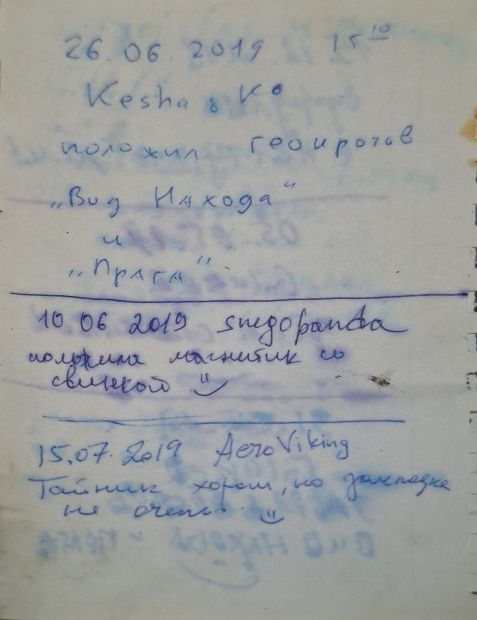 26.06.2019 15 10
Kesha & Kº
положил геокротов
„Вид Находа"
и
„Прага"
10.06 2019 snegopanda
положила магнитик со
свинкой :)
15.07.2019 AeroViking
Тайник хорош, но закладка
не очень :)